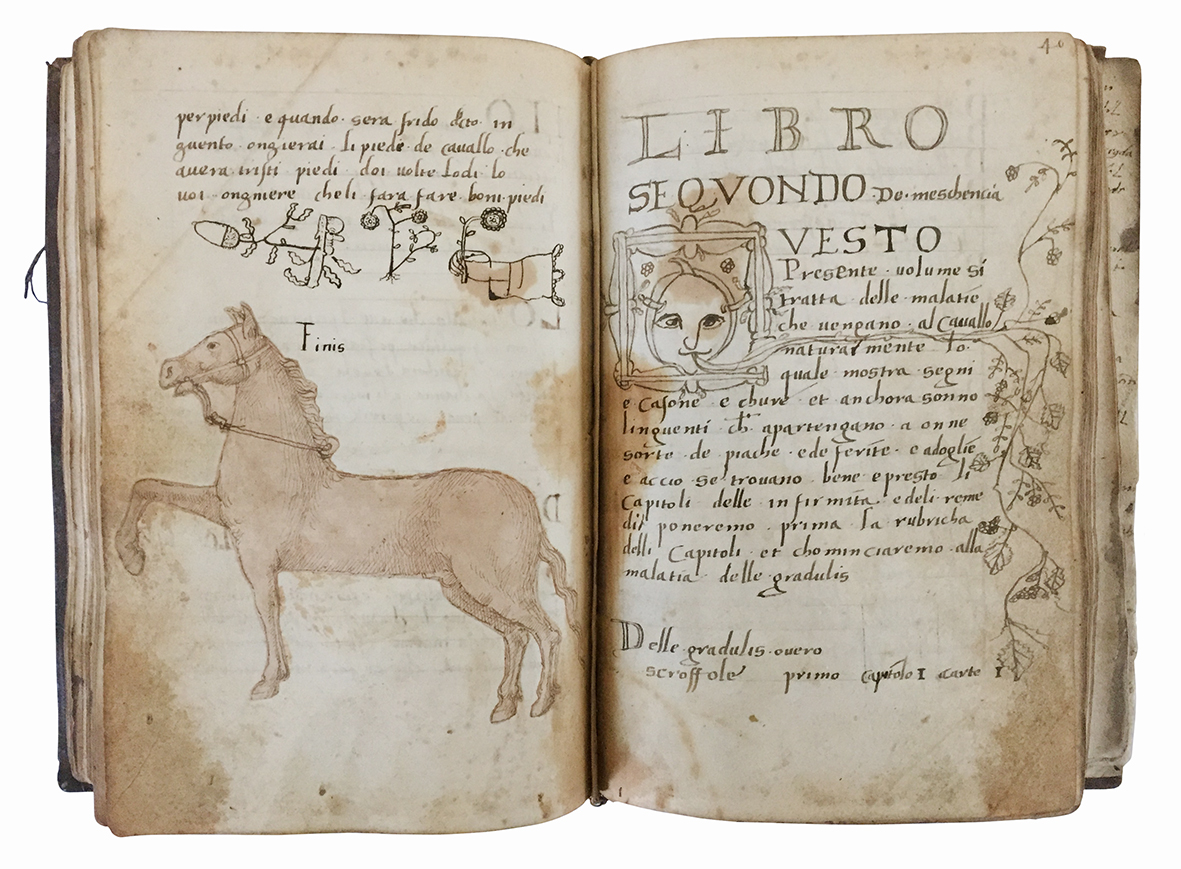 per piedi · e quando · sera frido dicto in
guento ongierai · li piede de cauallo che
auera tristi piedi doi uolte lodi lo
uoi · ongniere che li fara fare boni · piedi
Finis
40
LIBRO
SEQVONDO · De · meschencia
QVESTO
Presente · uolume si
tratta delle malatie
che uengano · al Cauallo
naturalmente lo
quale mostra segni
e Casone · e chure et anchora sonno
linguenti ch apartengano · a onne
sorte de piache · e de ferite · e adoglie
e accio se trouano bene e presto li
Capitoli delle infirmita e deli reme
dii poneremo prima la rubricha
delli Capitoli et chominciaremo alla
malatia delle gradulis
Delle gradulis · ouero
scroffole primo capitolo I Carte I